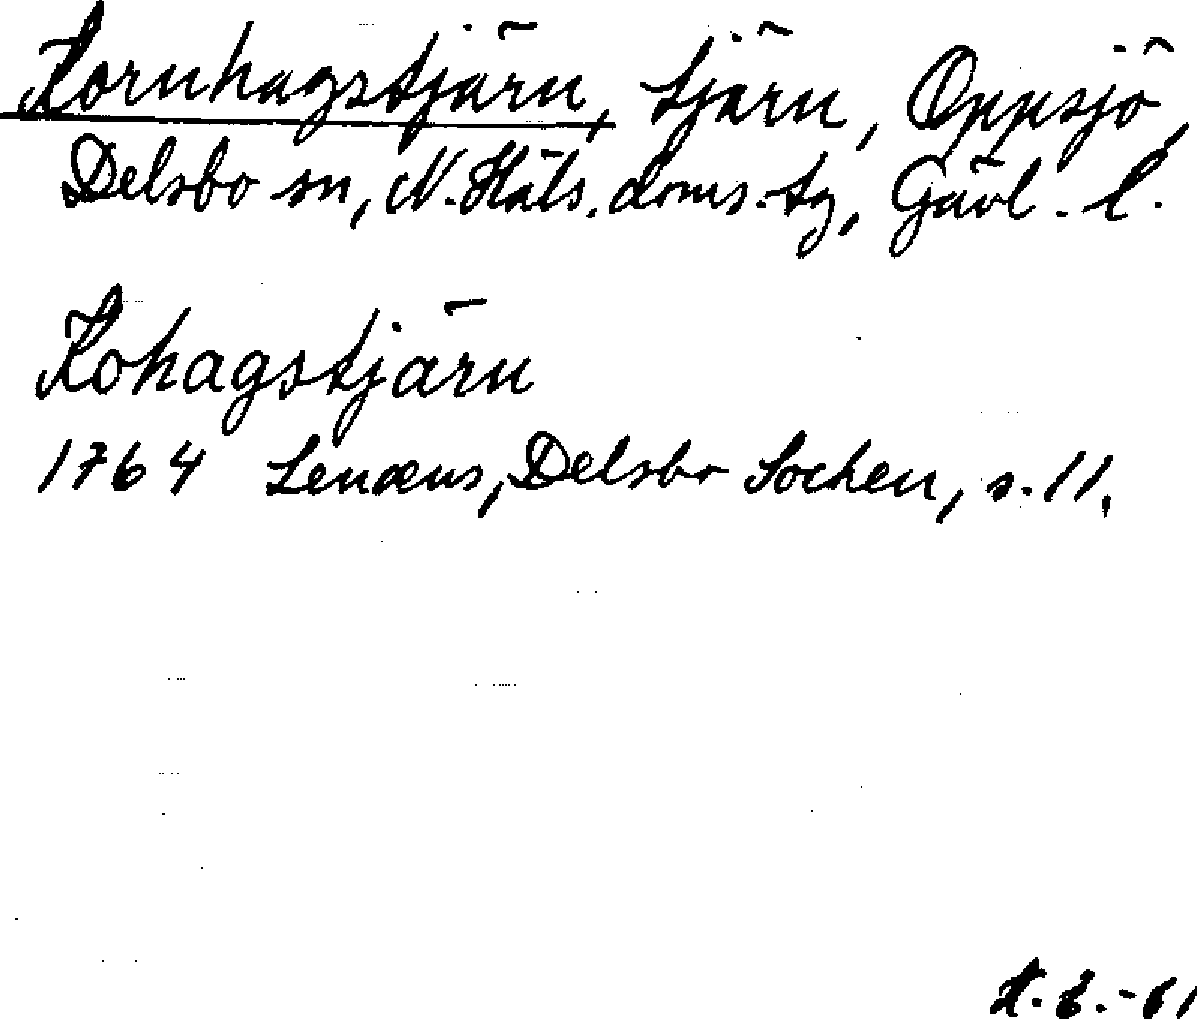 Kornhagstjärn, tjärn, Oppsjö,
Delsbo sn, N. Häls. doms. tg, Gävl. l.
Kohagstjärn
1764 Lenæus, Delsbo Sochen, s. 11.